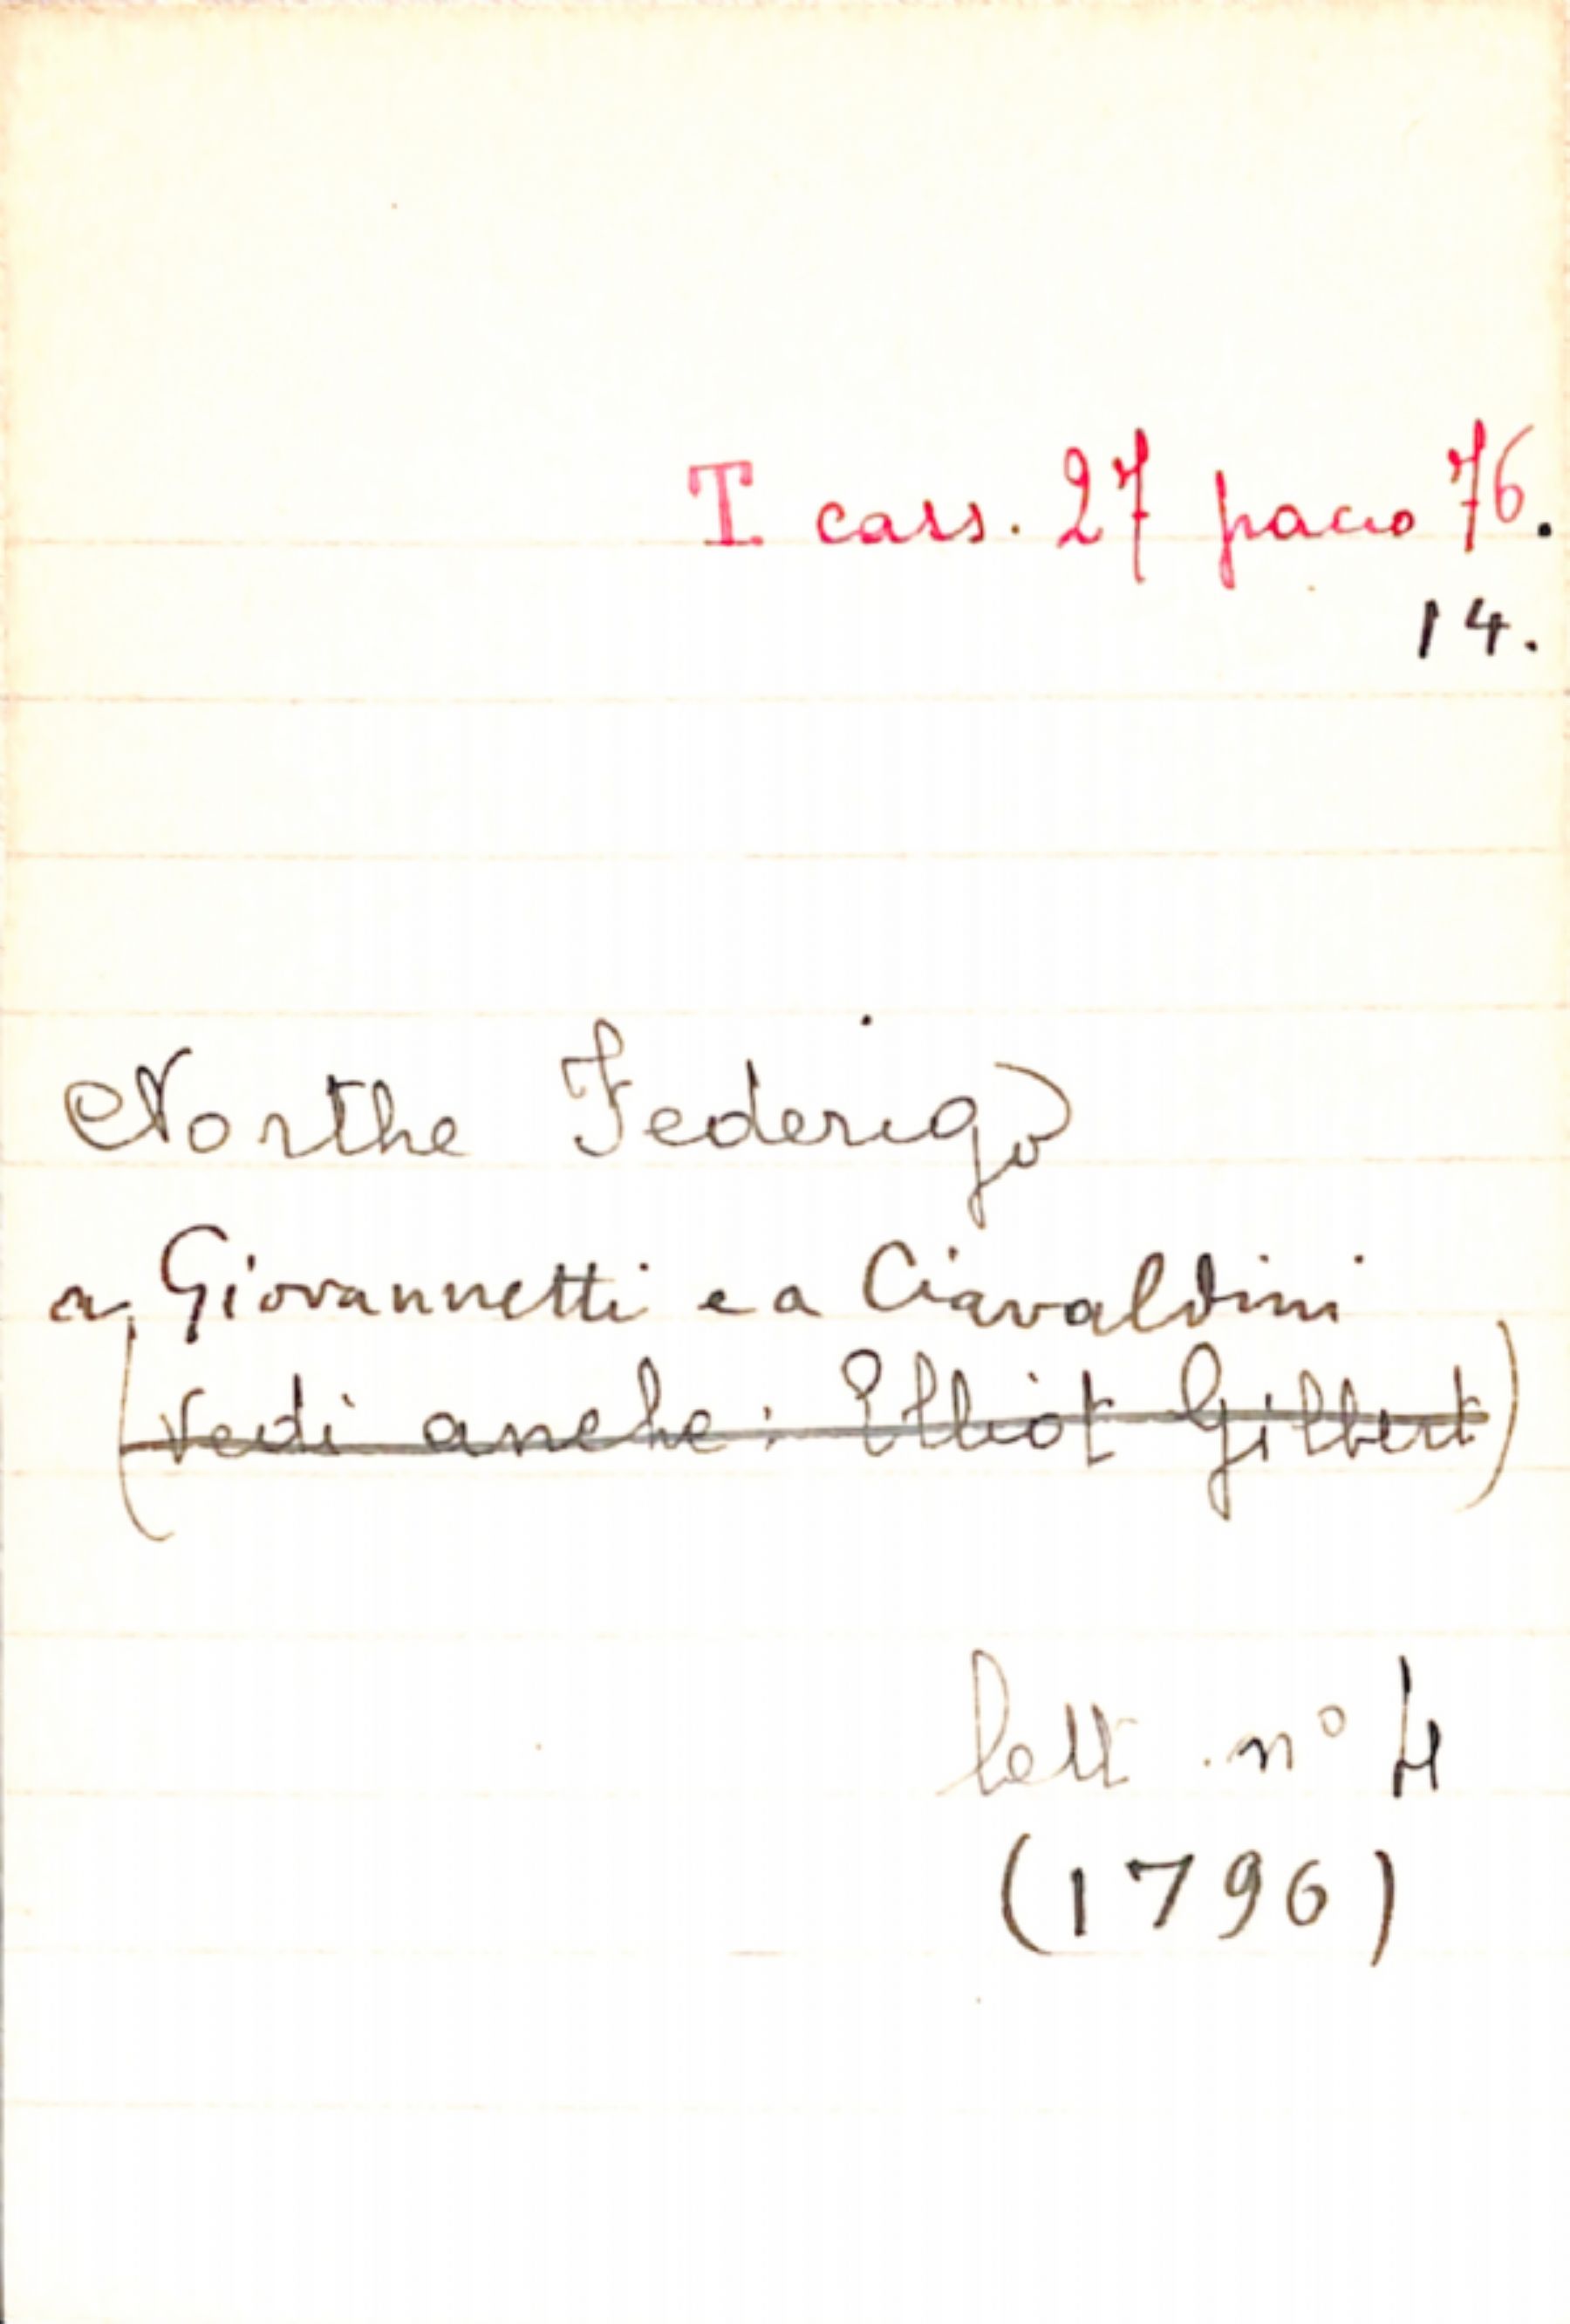 T. cass. 27 pacco 76.
14.
Northe Federigo
a Giovannetti e a Ciavaldini
(vedi anche: Elliot Gilbert)
lett. n° 4
(1796)